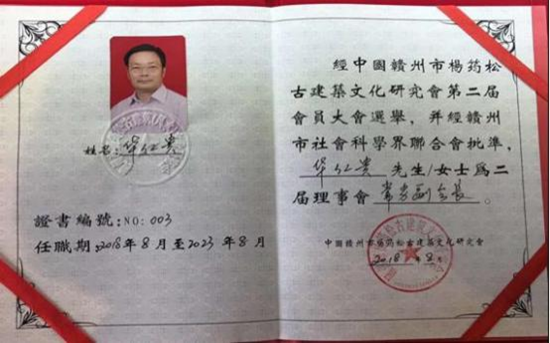 姓名:华仕贵
證書編號:NO: 003
任職期:2018年8月至2023年8月
經中國贛州市楊筠松
古建築文化研究會第二屆
會員大會選舉,并經贛州
市社會科學界聯合會批準,
华仕贵 先生/女士爲二
届理事會 常务副会长。
中國贛州市楊筠松古建築文化研究會
2018年8月